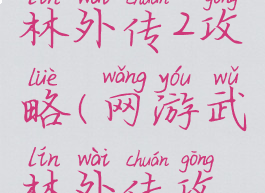 lín wài chuán gōng
林外传2攻
lüè wǎng yóu wǔ
略(网游武
lín wài chuán gōng
林外传攻